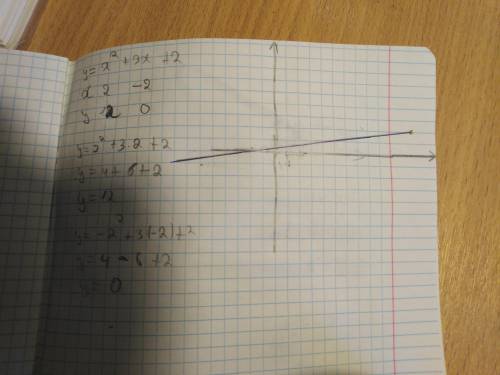 y=x²+3x+2
x 2 -2
y 12 0
y=2²+3·2+2
y=4+6+2
y=12
y=-2²+3(-2)+2
y=4-6+2
y=0